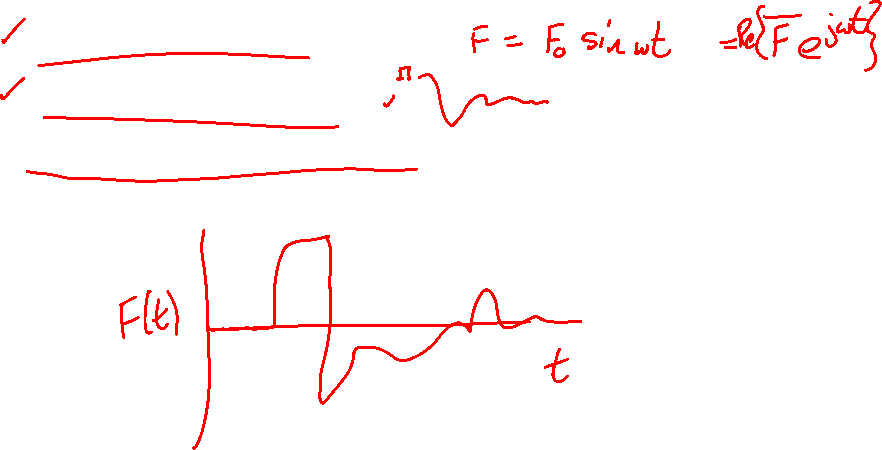 F = F₀ sin ωt = Re{F̅ e^{jωt}}
F(t)
t